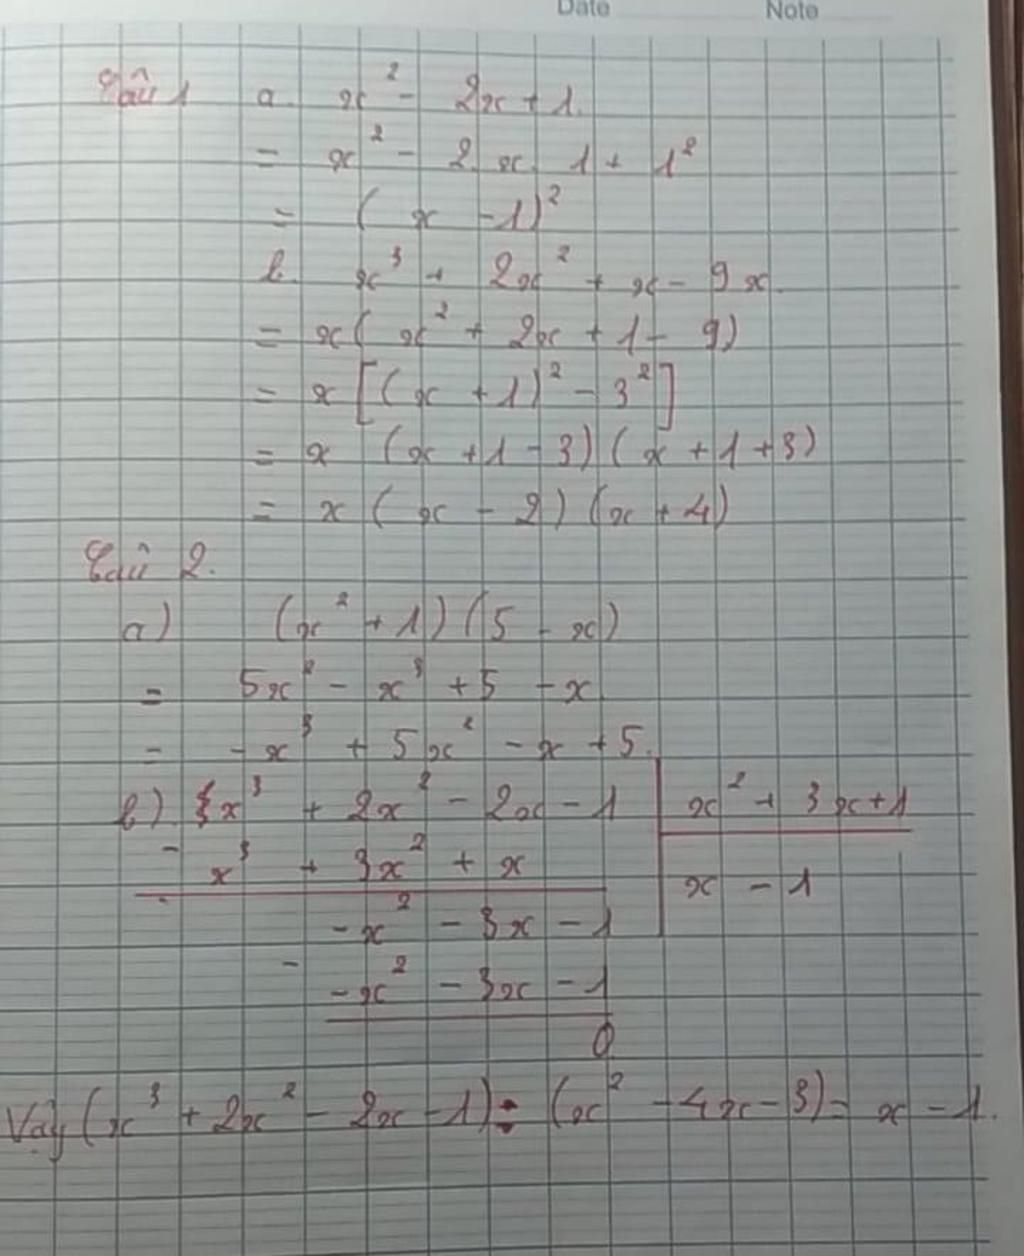 Date Note
Câu 1 a. x² - 2x + 1.
= x² - 2.x.1 + 1²
= (x - 1)²
b. x³ + 2x² + x - 9x.
= x(x² + 2x + 1 - 9)
= x[(x + 1)² - 3²]
= x (x + 1 - 3)(x + 1 + 3)
= x (x - 2)(x + 4)
Câu 2.
a) (x² + 1)(5 - x)
= 5x² - x³ + 5 - x
= -x³ + 5x² - x + 5.
b) x³ + 2x² - 2x - 1 | x² + 3x + 1
- x³ + 3x² + x | x - 1
-x² - 3x - 1
- -x² - 3x - 1
0
Vậy (x³ + 2x² - 2x - 1) : (x² - 4x - 3) = x - 1.